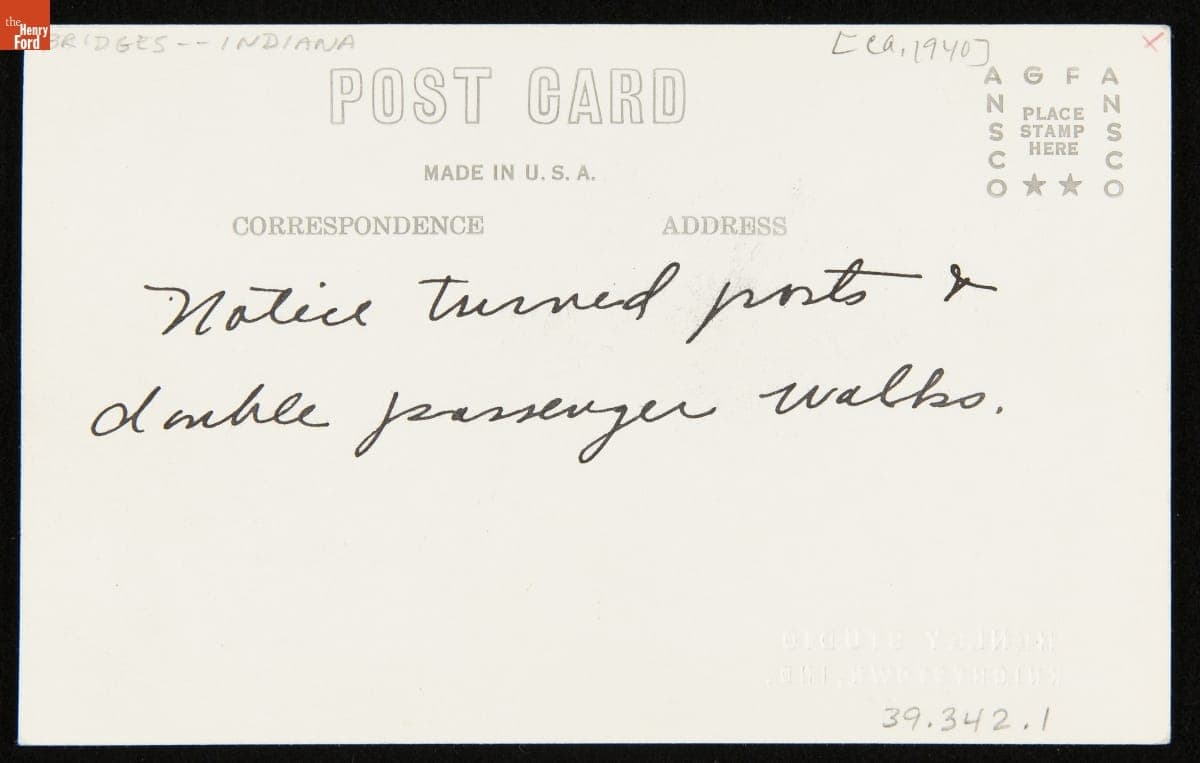 the Henry Ford
BRIDGES--INDIANA
[ca. 1940]
POST CARD
AGFA
ANSCO
ANSCO
PLACE
STAMP
HERE
MADE IN U.S.A.
CORRESPONDENCE
ADDRESS
Notice turned posts &
double passenger walks.
HENLEY STUDIO
KNIGHTSTOWN, IND.
39.342.1